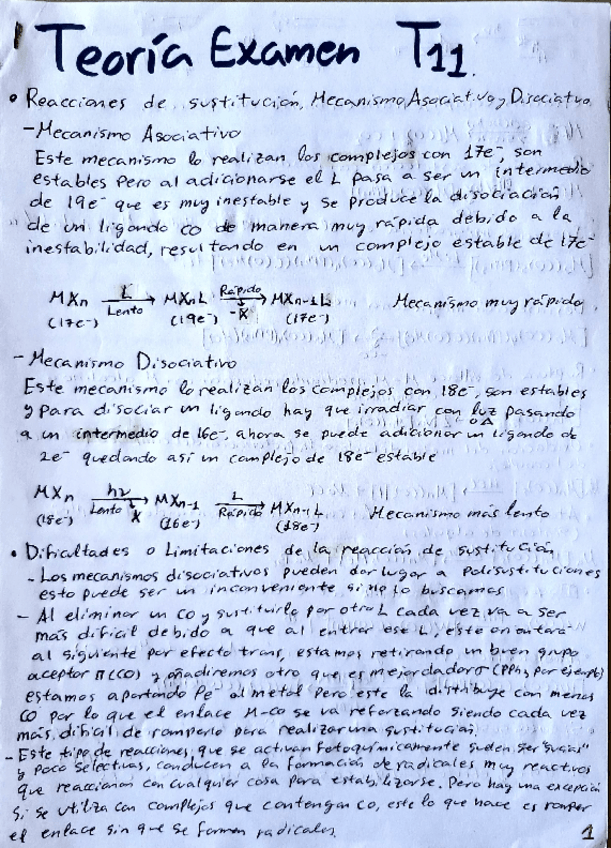 Teoría Examen T11
• Reacciones de sustitución, Mecanismo Asociativo y Disociativo
- Mecanismo Asociativo
Este mecanismo lo realizan los complejos con 17e-, son
estables pero al adicionarse el L pasa a ser un intermedio
de 19e- que es muy inestable y se produce la disociación
de un ligando CO de manera muy rápida debido a la
inestabilidad, resultando en un complejo estable de 17e-
MXn L Lento → MXnL Rápido -X → MXn-1L Mecanismo muy rápido
(17e-) (19e-) (17e-)
- Mecanismo Disociativo
Este mecanismo lo realizan los complejos con 18e-, son estables
y para disociar un ligando hay que irradiar con luz o Δ pasando
a un intermedio de 16e- ahora se puede adicionar un ligando de
2e- quedando así un complejo de 18e- estable
MXn hν Lento X → MXn-1 L Rápido → MXn-1L Mecanismo más lento
(18e-) (16e-) (18e-)
• Dificultades o Limitaciones de la reacción de sustitución
- Los mecanismos disociativos pueden dar lugar a polisustituciones
esto puede ser un inconveniente si no lo buscamos
- Al eliminar un CO y sustituirlo por otro L cada vez va a ser
más dificil debido a que al entrar ese L, este orientará
al siguiente por efecto trans, estamos retirando un buen grupo
aceptor π (CO) y añadiremos otro que es mejor dador σ (PPh3 por ejemplo)
estamos aportando e- al metal pero este la distribuye con menos
CO por lo que el enlace M-CO se va reforzando siendo cada vez
más dificil de romperlo para realizar una sustitución
- Este tipo de reacciones, que se activan fotoquímicamente suelen ser "sucias"
y poco selectivas, conducen a la formación de radicales muy reactivos
que reaccionan con cualquier cosa para estabilizarse. Pero hay una excepción
si se utiliza con complejos que contengan CO, este lo que hace es romper
el enlace sin que se formen radicales.
1